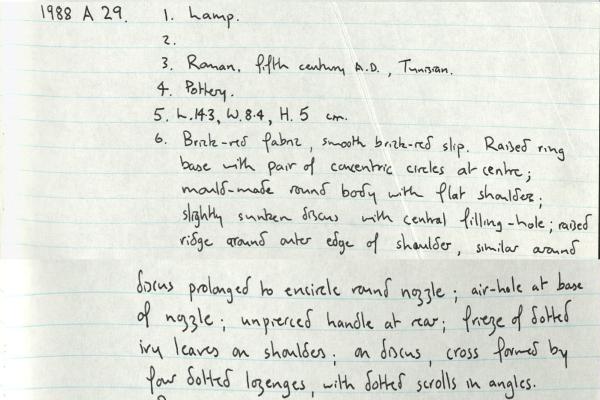 1988 A 29. 1. Lamp.
2.
3. Roman, fifth century A.D., Tunisian.
4. Pottery.
5. L.14.3, W.8.4, H. 5 cm.
6. Brick-red fabric, smooth brick-red slip. Raised ring
base with pair of concentric circles at centre;
mould-made round body with flat shoulder;
slightly sunken discus with central filling-hole; raised
ridge around outer edge of shoulder, similar around
discus prolonged to encircle round nozzle; air-hole at base
of nozzle; unpierced handle at rear; frieze of dotted
ivy leaves on shoulder; on discus, cross formed by
four dotted lozenges, with dotted scrolls in angles.